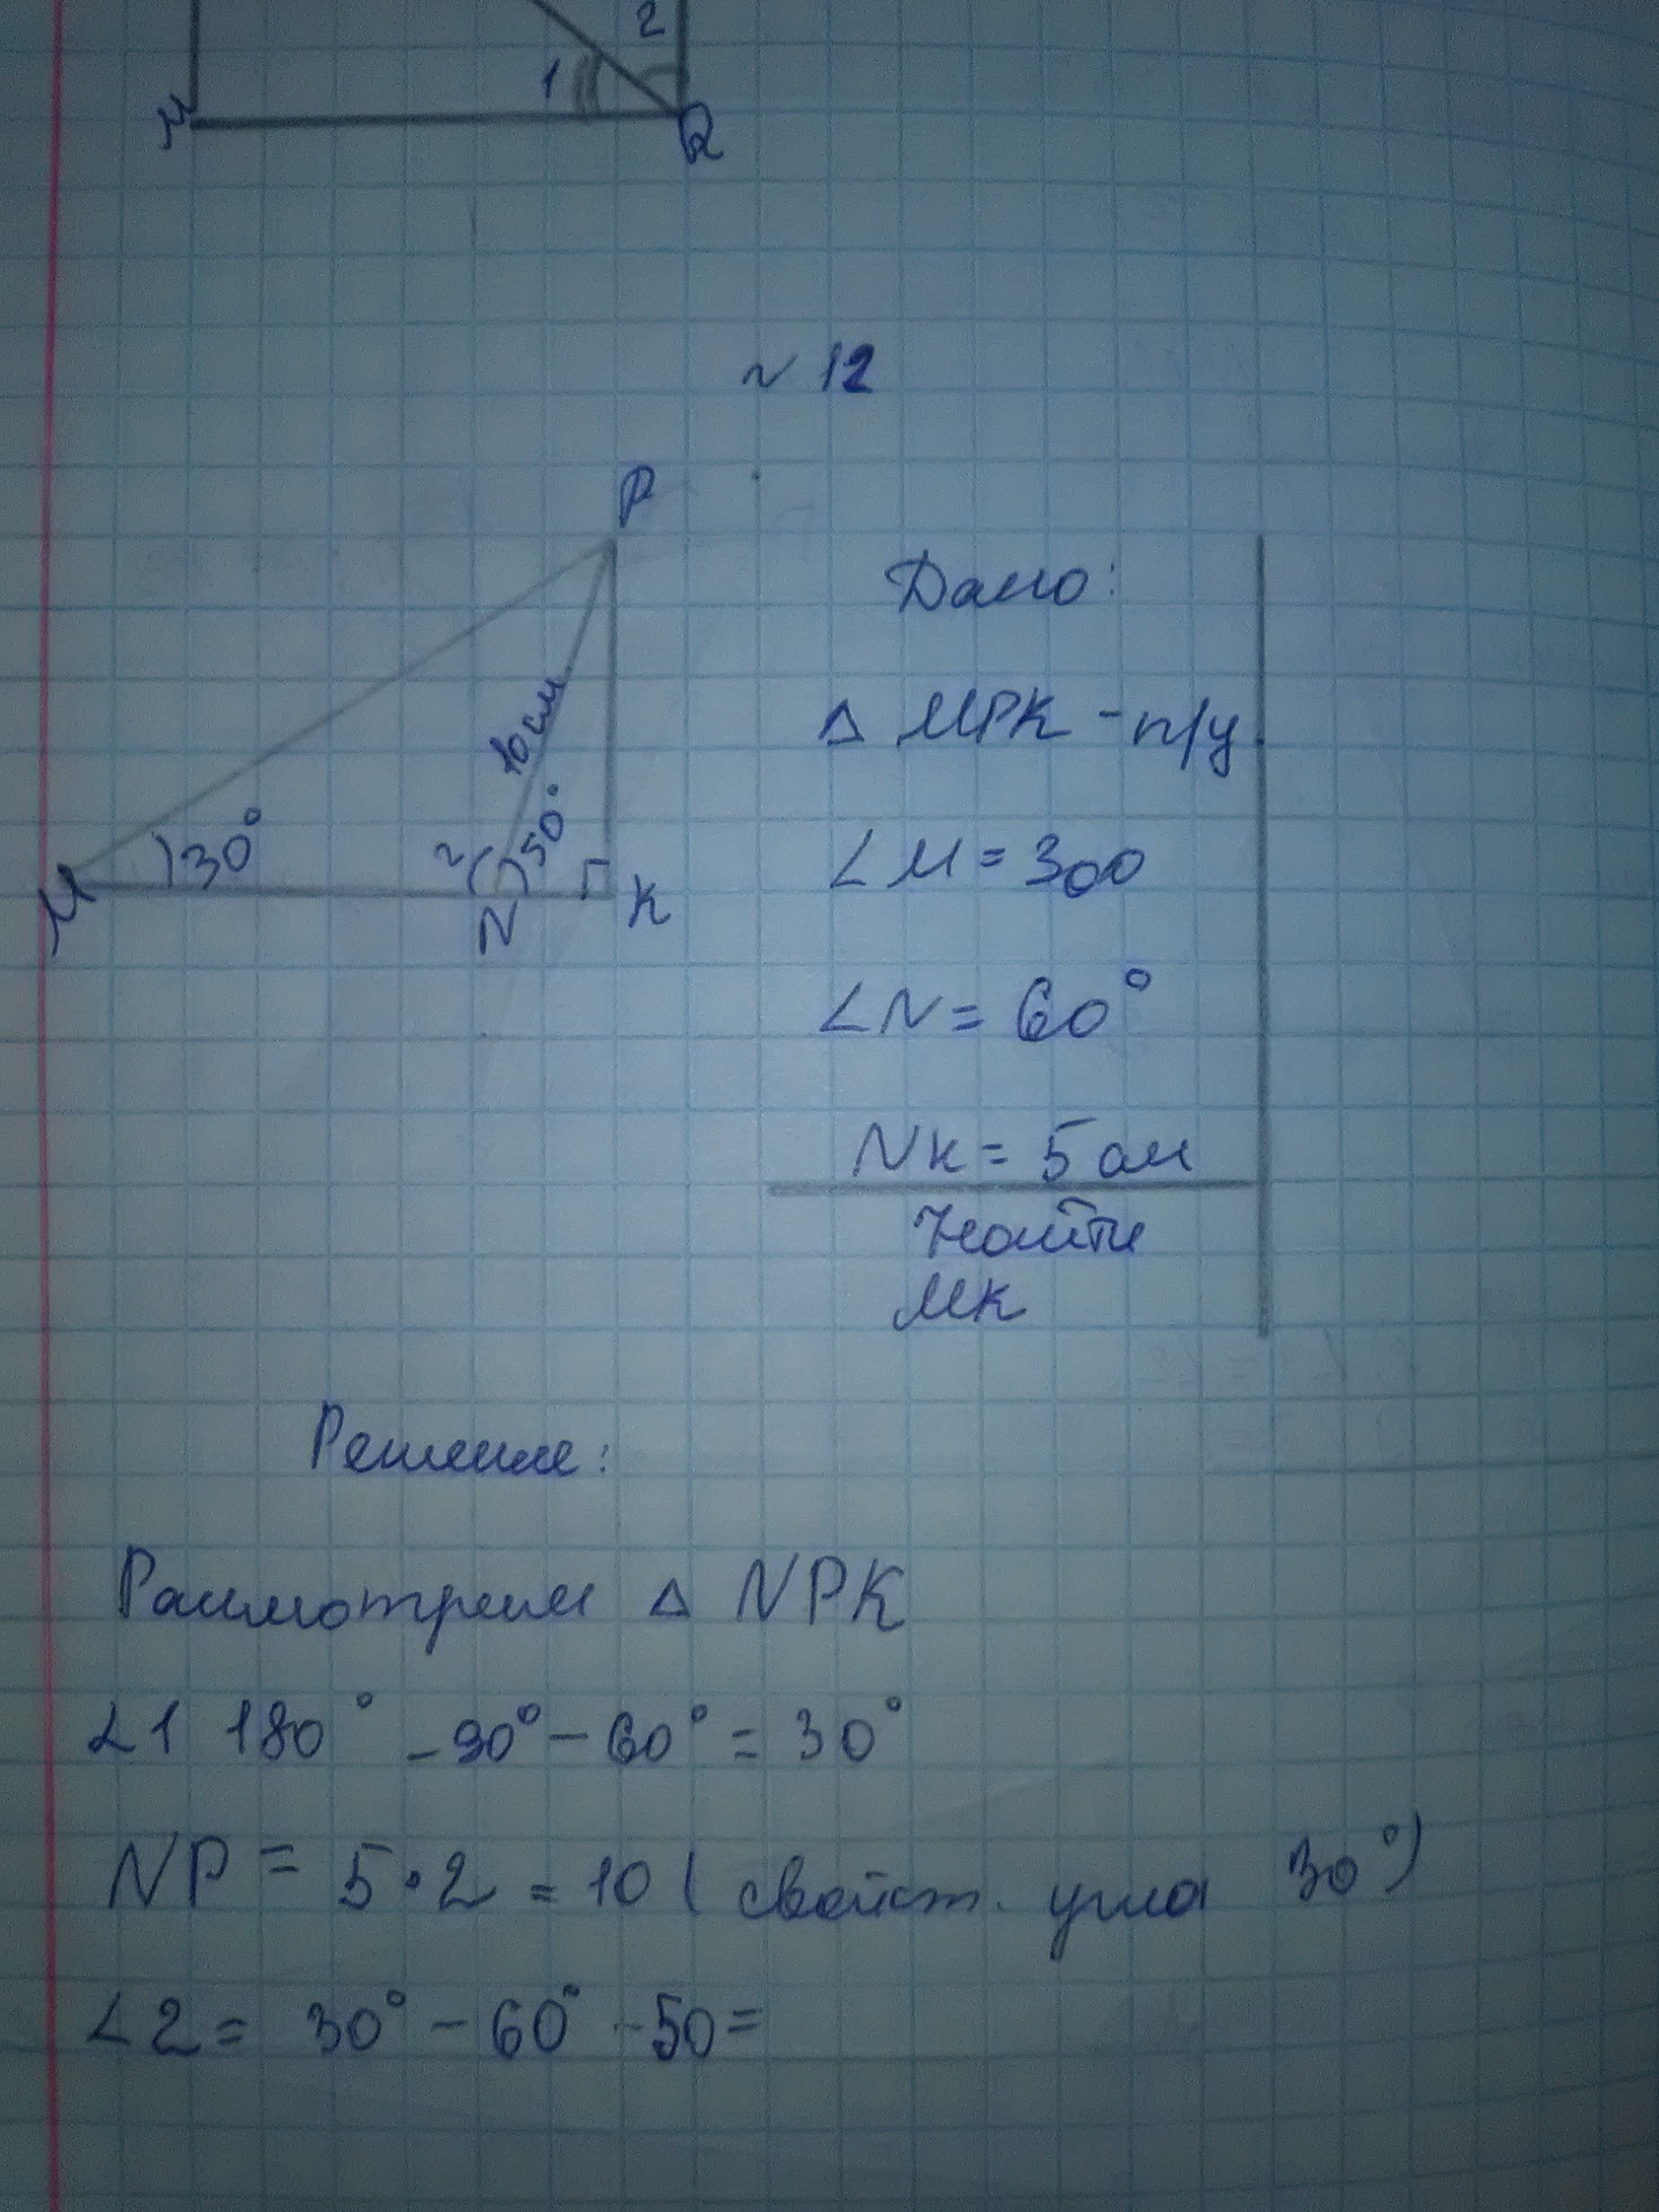 2
1
M
Q
N 12
P
10 см
50°
30°
2
M
N
K
Дано:
Δ MPK - п/у
∠M = 300
∠N = 60°
NK = 5 см
Найти
MK
Решение:
Рассмотрим Δ NPK
∠1 180° - 90° - 60° = 30°
NP = 5 · 2 = 10 ( свойст. угла 30°)
∠2 = 30° - 60° - 50 =